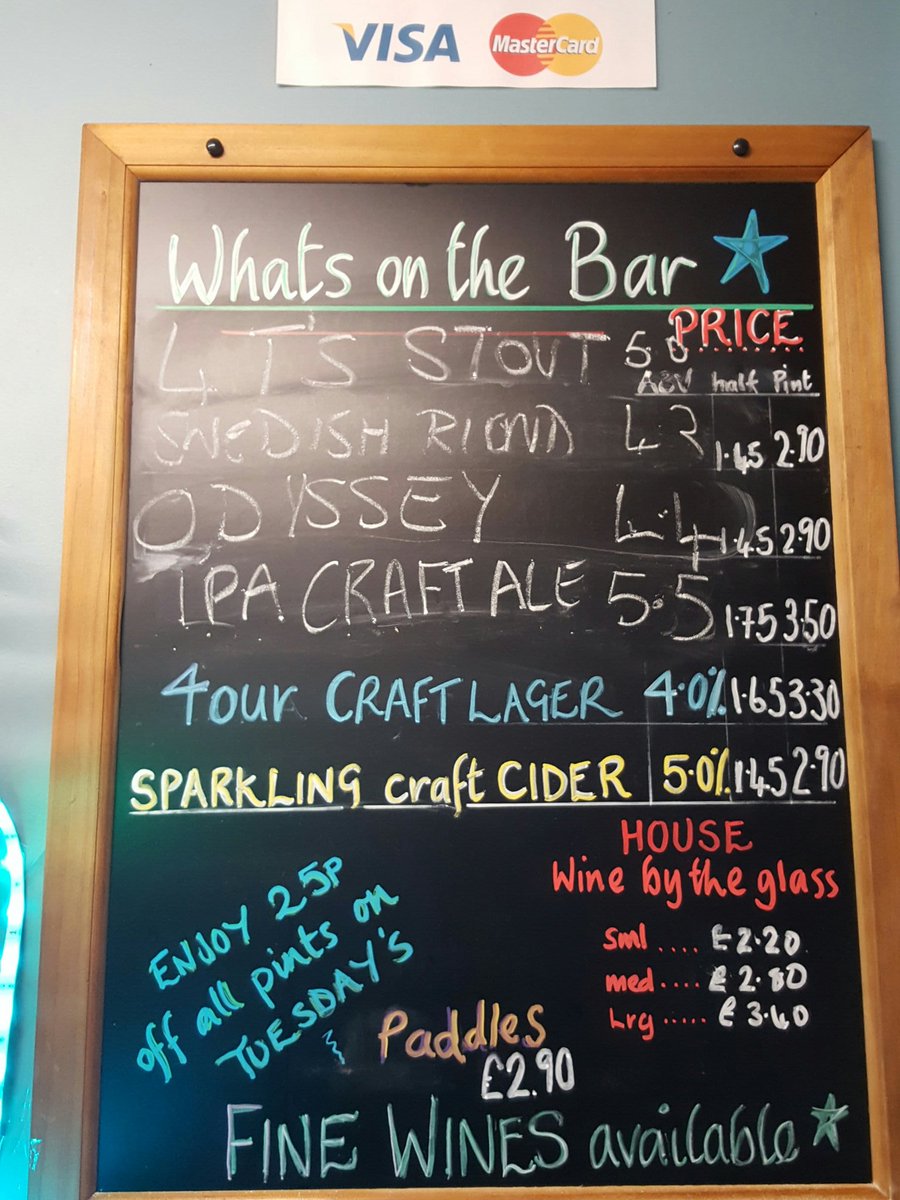 VISA MasterCard
Whats on the Bar
PRICE
4 T's STOUT 5.0
ABV half Pint
SWEDISH BLOND 4.2 1.45 2.90
ODYSSEY 4.4 1.45 2.90
IPA CRAFT ALE 5.5 1.75 3.50
4our CRAFT LAGER 4.0% 1.65 3.30
SPARKLING craft CIDER 5.0% 1.45 2.90
HOUSE
Wine by the glass
Sml .... £2.20
med .... £2.80
Lrg ..... £3.40
ENJOY 25P
off all pints on
TUESDAY'S
Paddles
£2.90
FINE WINES available